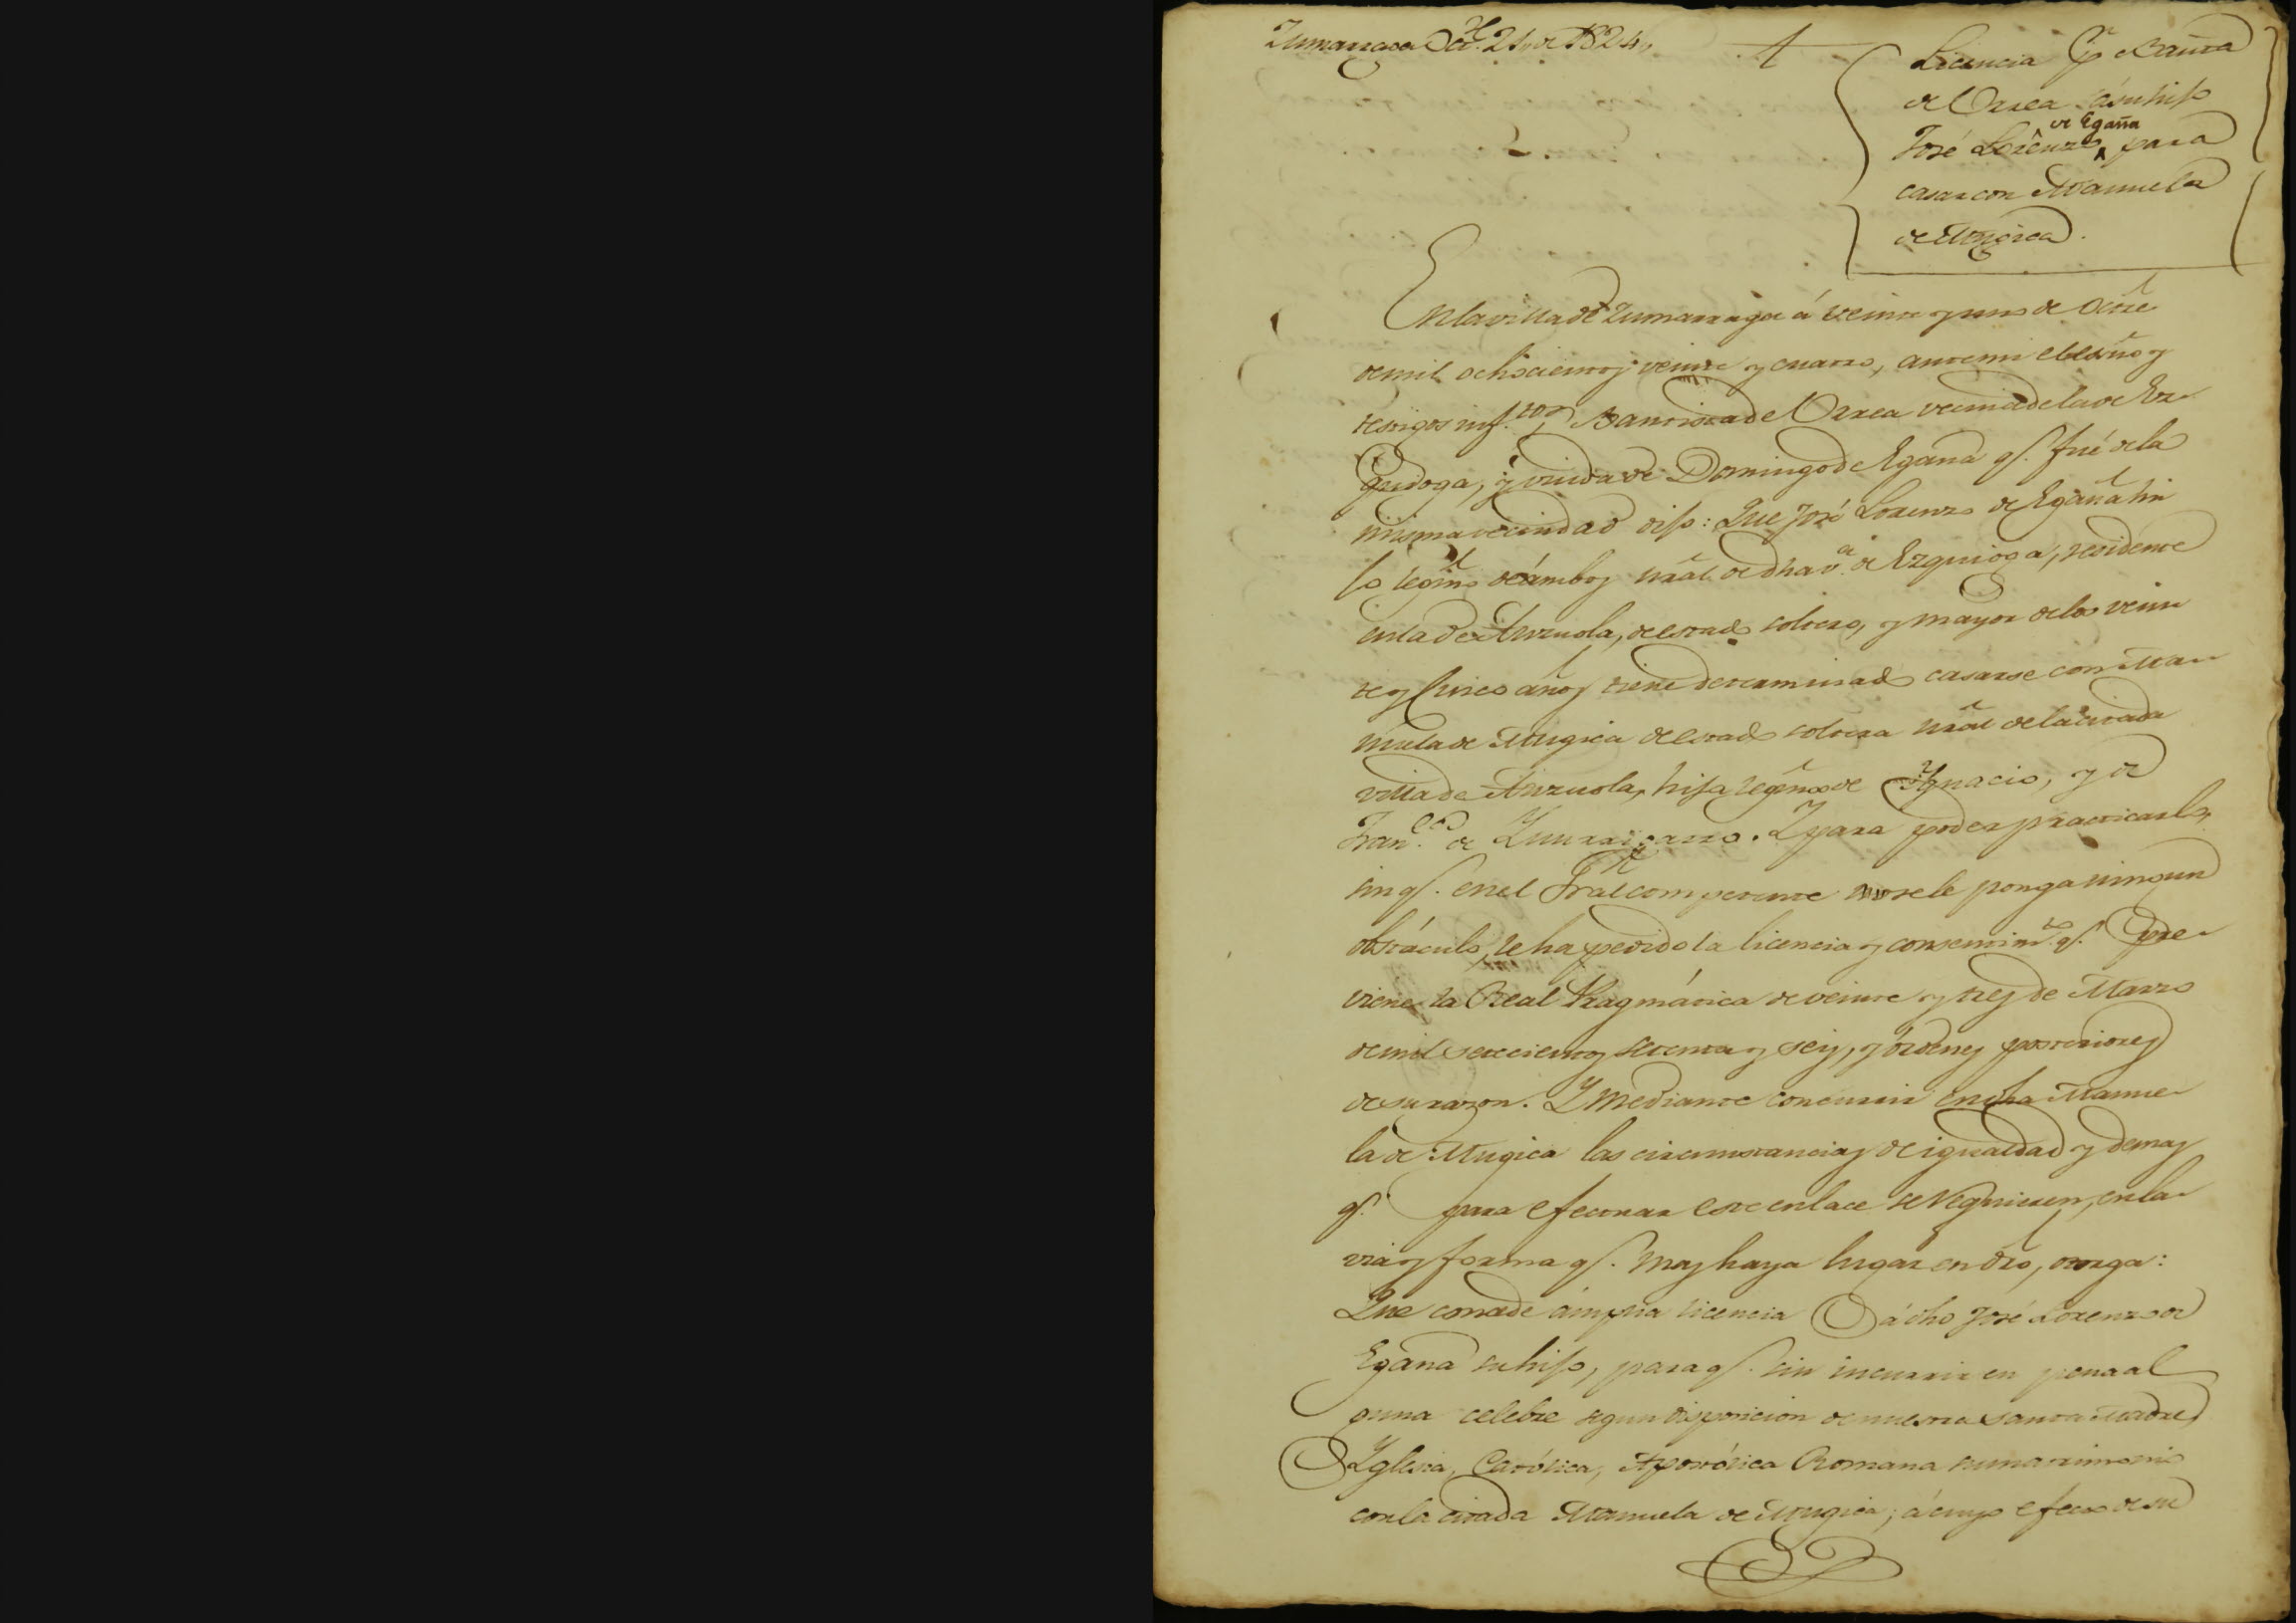 Zumarraga Oct.e 21, de 1824,
Licencia Pr Bauta
de Orrea á su hijo
José Lorenzo de Egaña para
casar con Manuela
de Mugica.
En la villa de Zumarraga á veinte y uno de Octre
de mil ochocientos veinte y cuatro, ante mi el esno y
testigos inf.tos Bautista de Orrea vecina de la de Ez-
quioga, y viuda de Domingo de Egaña q.e fué de la
misma vecindad dijo: Que José Lorenzo de Egaña hi
jo legmo de ámbos nral de dha v.a de Ezquioga, residente
en la de Anzuola, de estado soltero, y mayor de los vein
te y cinco años tiene determinado casarse con Ma-
nuela de Mugica de estado soltera nral de la citada
villa de Anzuola, hija legma de Ygnacio, y de
Fran.ca de . Y para poder practicarlo,
sin q.e en el Tral competente no se le ponga ningun
obstáculo, le ha pedido la licencia y consentim.to q.e pre-
viene la Real Pragmática de veinte y tres de Marzo
de mil setecientos setenta y seis, y órdenes posteriores
de su razon. Y mediante concurrir en dha Manue-
la de Mugica las circunstancias de igualdad y demas
q.e para efectuar este enlace se requieren, en la
via y forma q.e mas haya lugar en dro, otorga:
Que concede ámplia licencia á dho José Lorenzo de
Egaña su hijo, para q.e sin incurrir en pena al
guna celebre segun disposicion de nuestra santa Madre
Yglesia, Católica, Apostólica Romana su matrimonio
con la citada Manuela de Mugica; á cuyo efecto de su